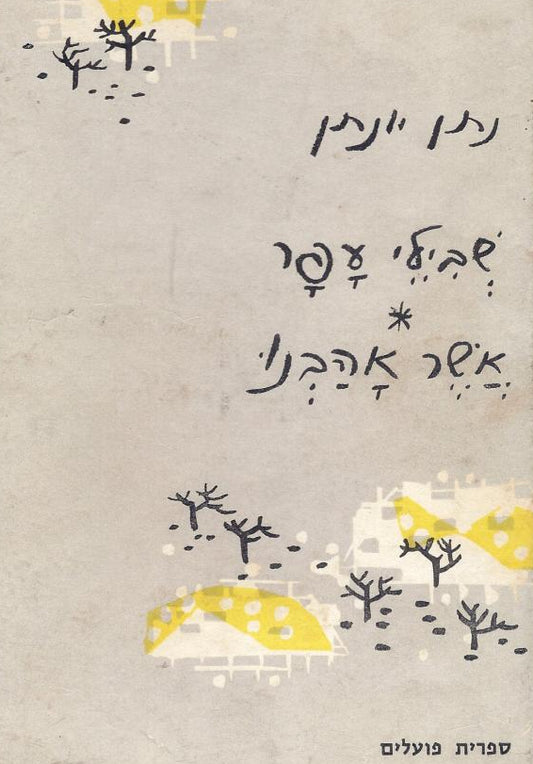 נתן יונתן
שְׁבִילֵי עָפָר
*
אֲשֶׁר אָהַבְנוּ
ספרית פועלים